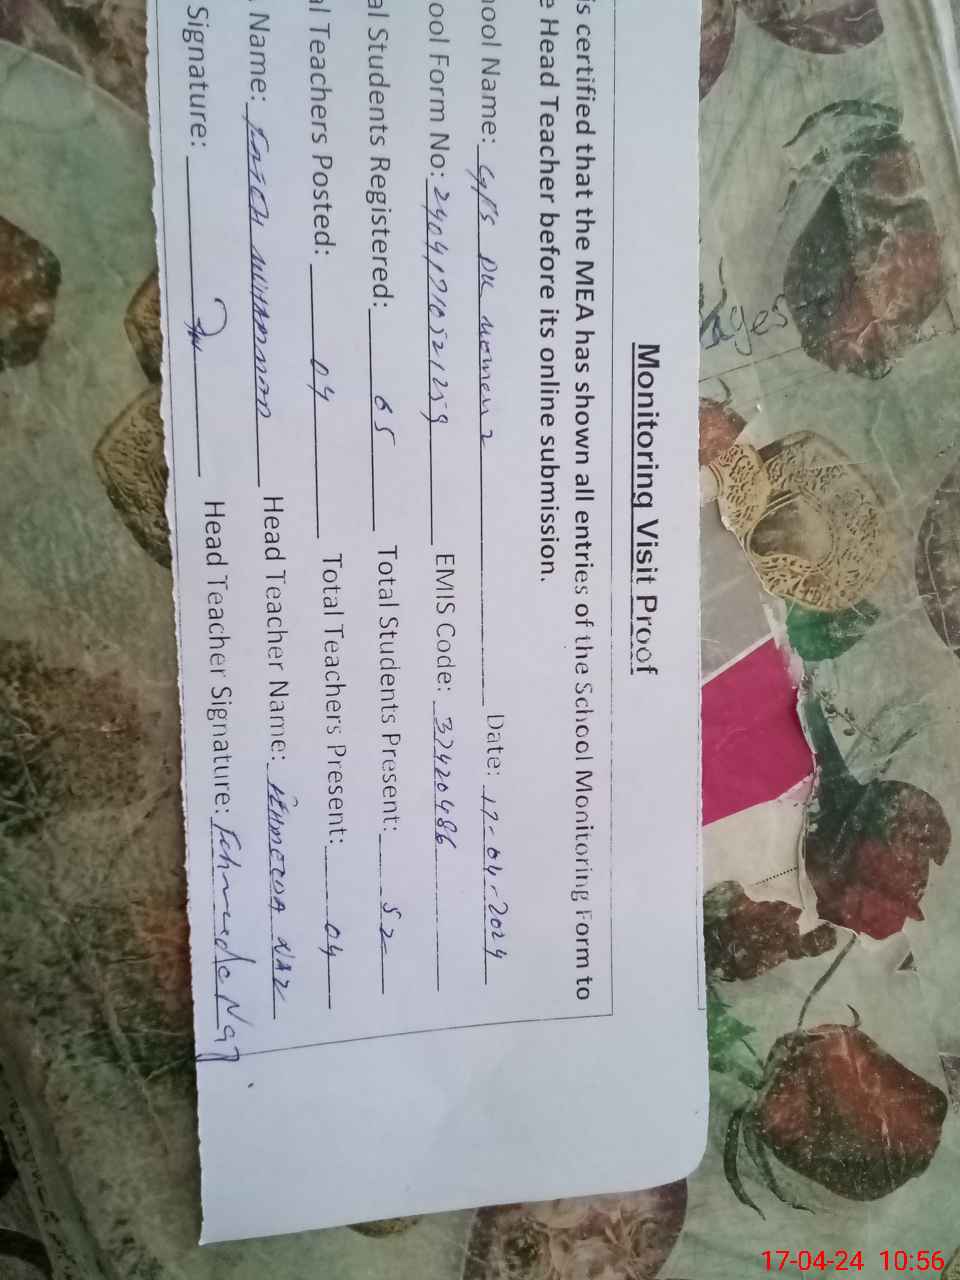 Monitoring Visit Proof
is certified that the MEA has shown all entries of the School Monitoring Form to
e Head Teacher before its online submission.
ool Name: GPS DK 2 Date: 17-04-2024
ool Form No: EMIS Code: 37420486
al Students Registered: 65 Total Students Present: 52
al Teachers Posted: 04 Total Teachers Present: 04
Name: Head Teacher Name: NAZ
Signature: Head Teacher Signature: Naz
17-04-24 10:56